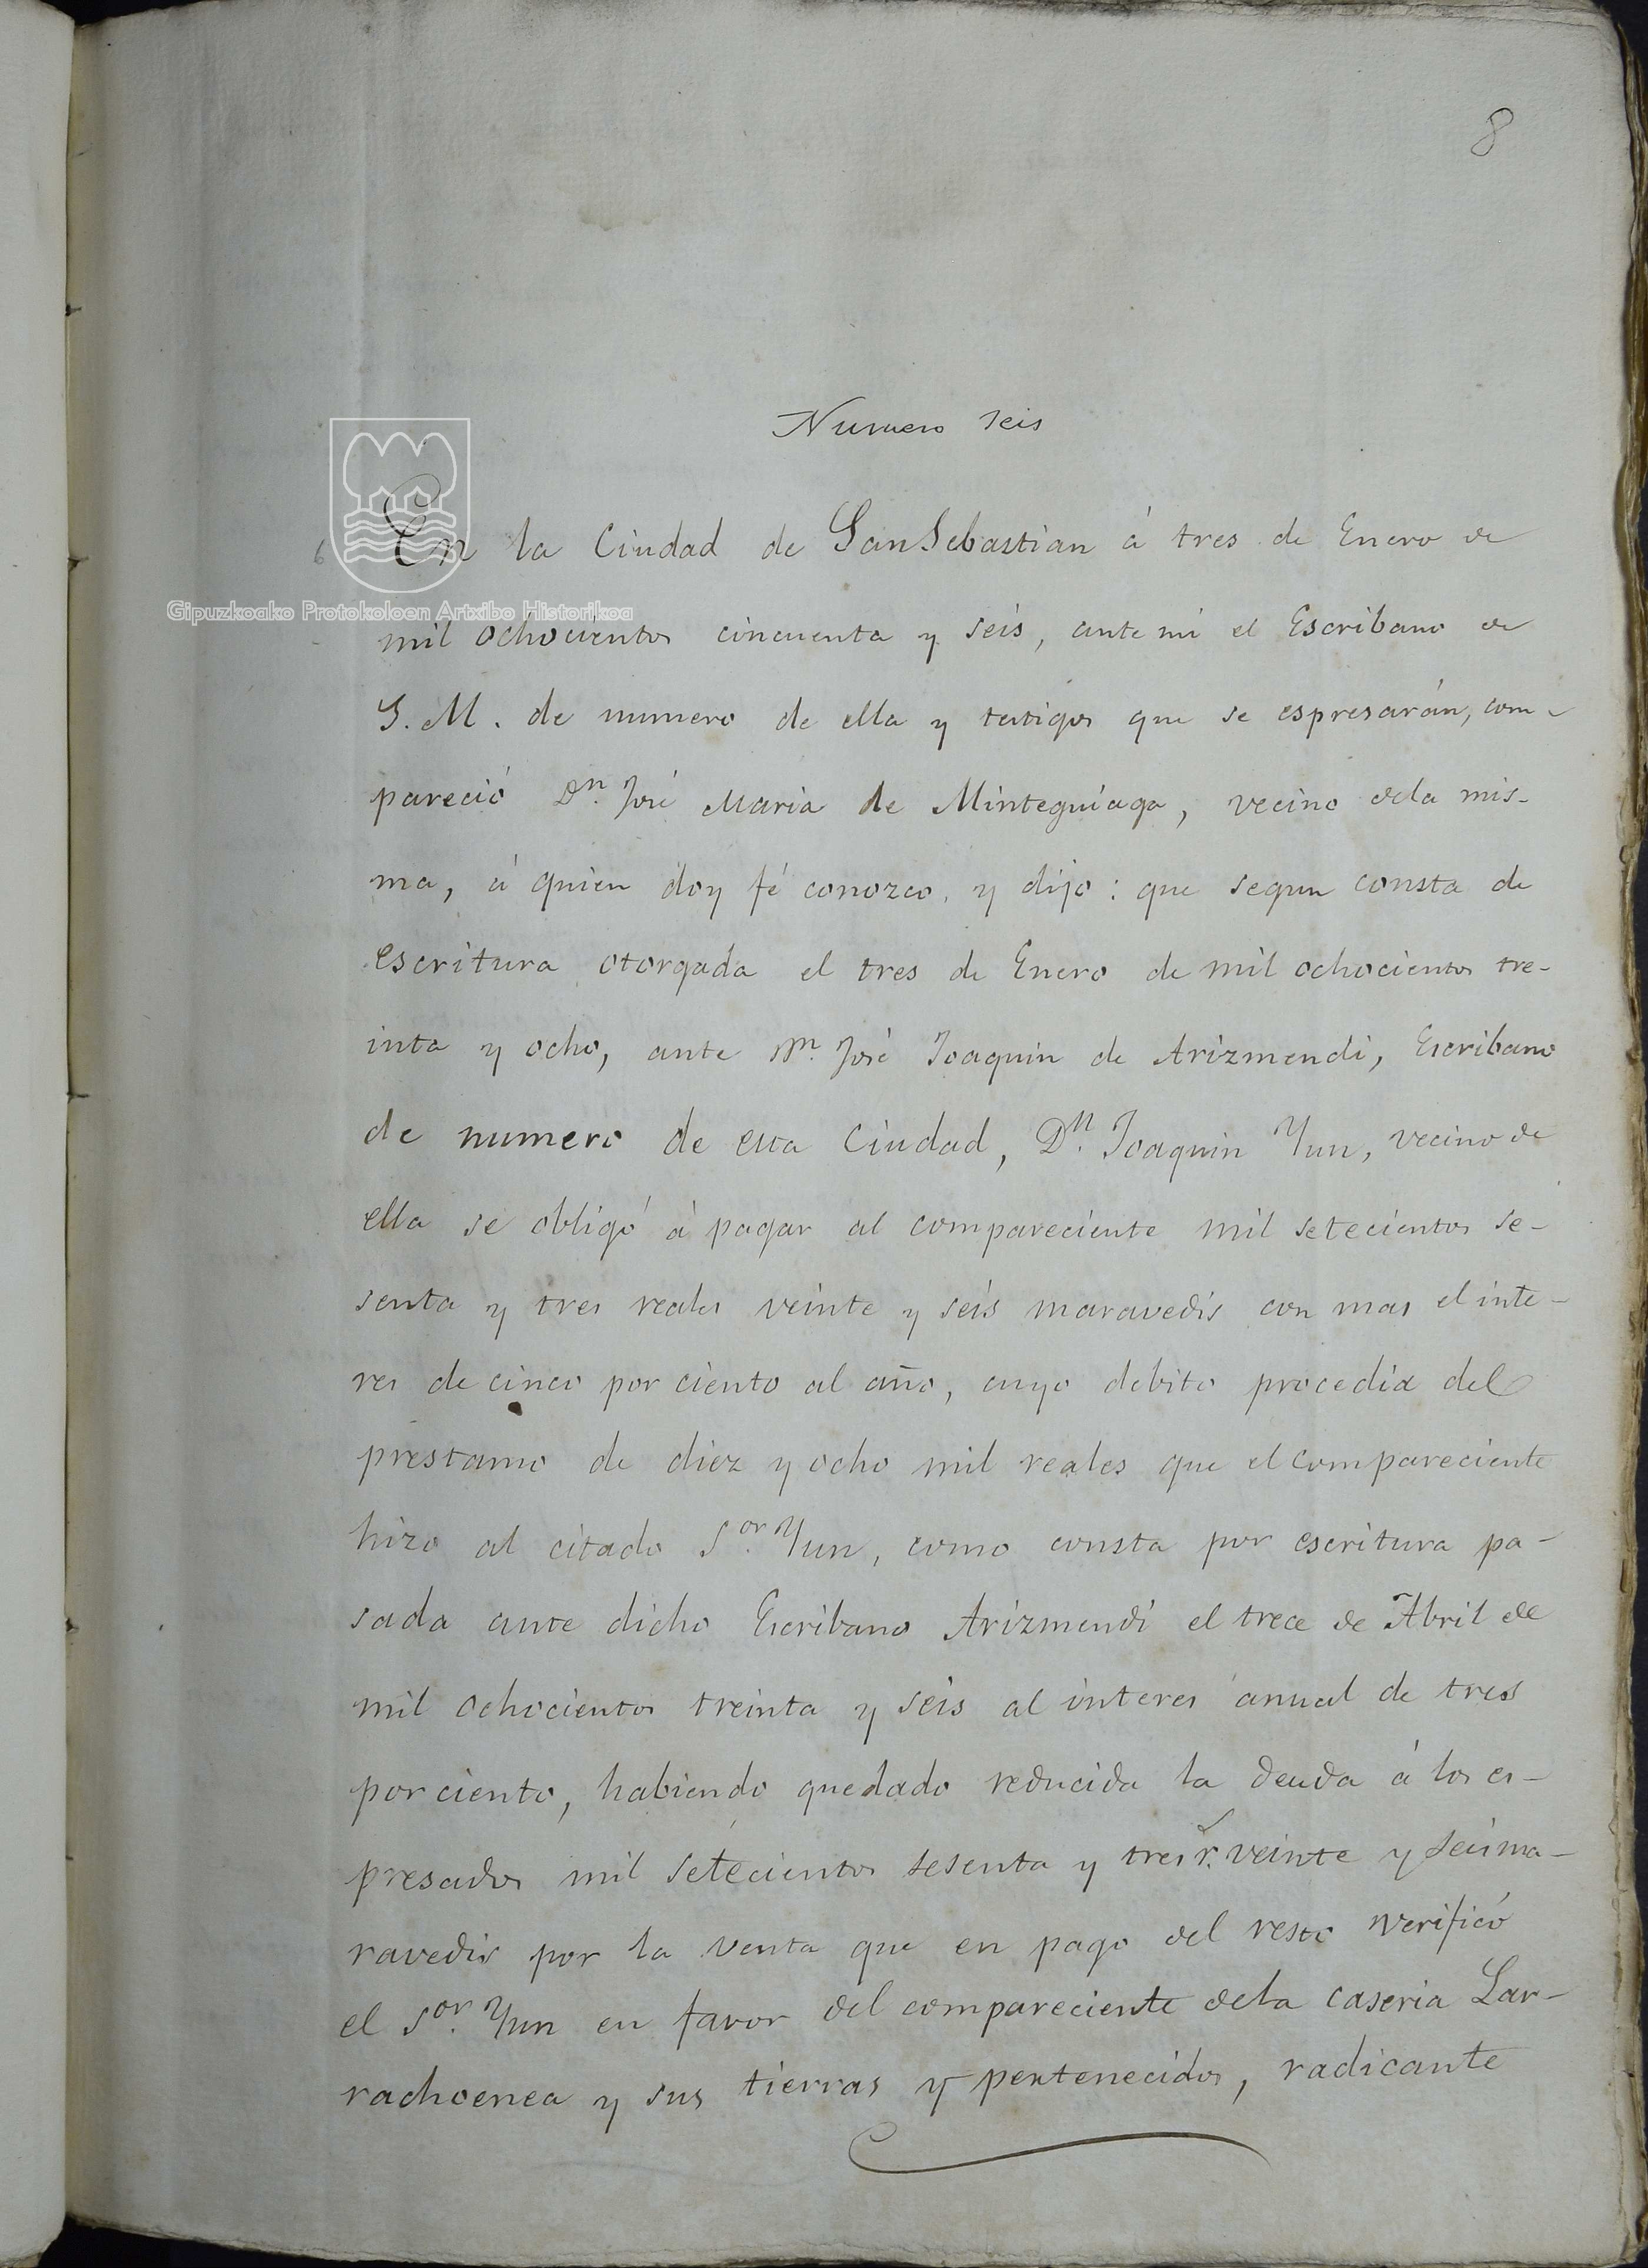 8
Numero seis
6
En la Ciudad de San Sebastian á tres de Enero de
Gipuzkoako Protokoloen Artxibo Historikoa
mil ochocientos cincuenta y seis, ante mi el Escribano de
S. M. de numero de ella y testigos que se espresarán, com-
pareció Dn. José Maria de Minteguiaga, vecino dela mis-
ma, á quien doy fé conozco, y dijo: que segun consta de
escritura otorgada el tres de Enero de mil ochocientos tre-
inta y ocho, ante Dn. José Joaquin de Arizmendi, Escribano
de numero de esta Ciudad, Dn. Joaquin Yun, vecino de
ella se obligó á pagar al compareciente mil setecientos se-
senta y tres reales veinte y seis maravedis con mas el inte-
res de cinco por ciento al año, cuyo debito procedia del
prestamo de diez y ocho mil reales que el compareciente
hizo al citado Sor. Yun, como consta por escritura pa-
sada ante dicho Escribano Arizmendi el trece de Abril de
mil ochocientos treinta y seis al interes anual de tres
por ciento, habiendo quedado reducida la deuda á los es-
presados mil setecientos sesenta y tres r.s veinte y seis ma-
ravedis por la venta que en pago del resto verificó
el Sor. Yun en favor del compareciente dela caseria Lar-
rachoenea y sus tierras y pertenecidos, radicante